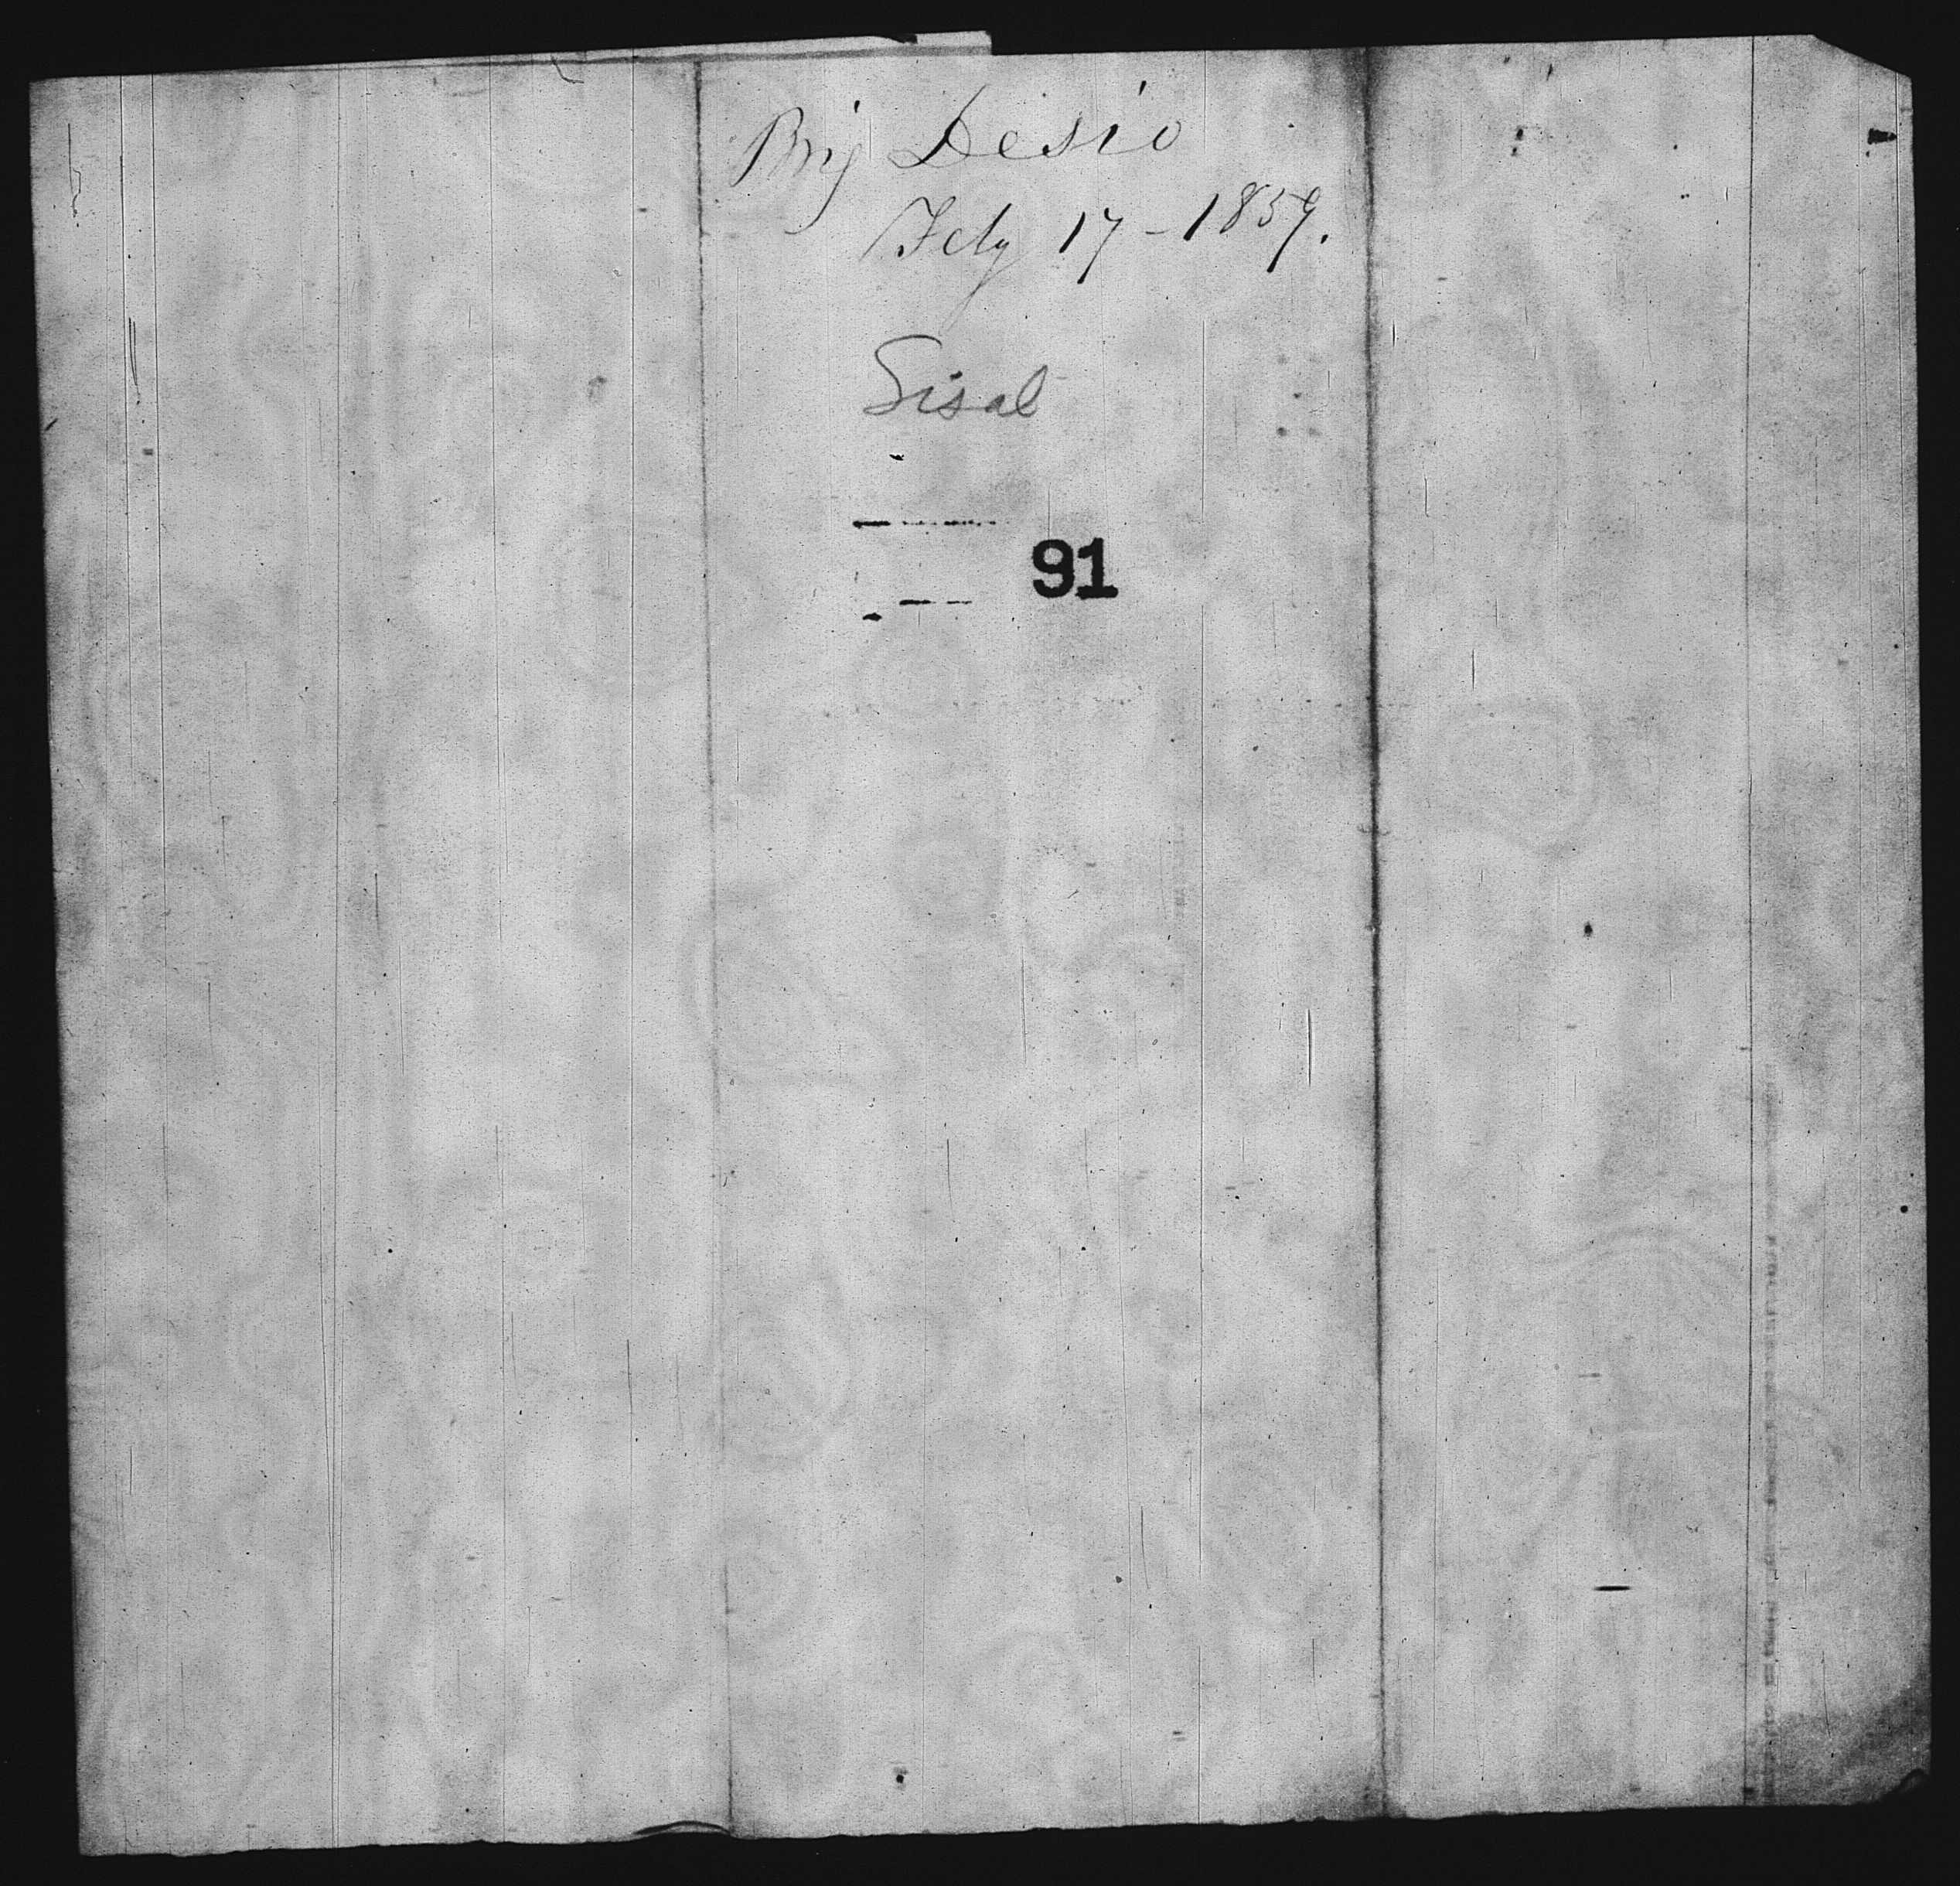 Brig Desio
Feby 17 - 1859.
Sisal
91